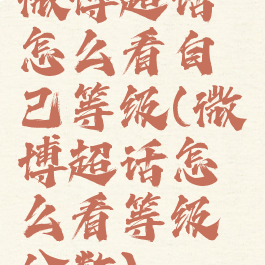 微博超话
怎么看自
己等级(微
博超话怎
么看等级
分数)